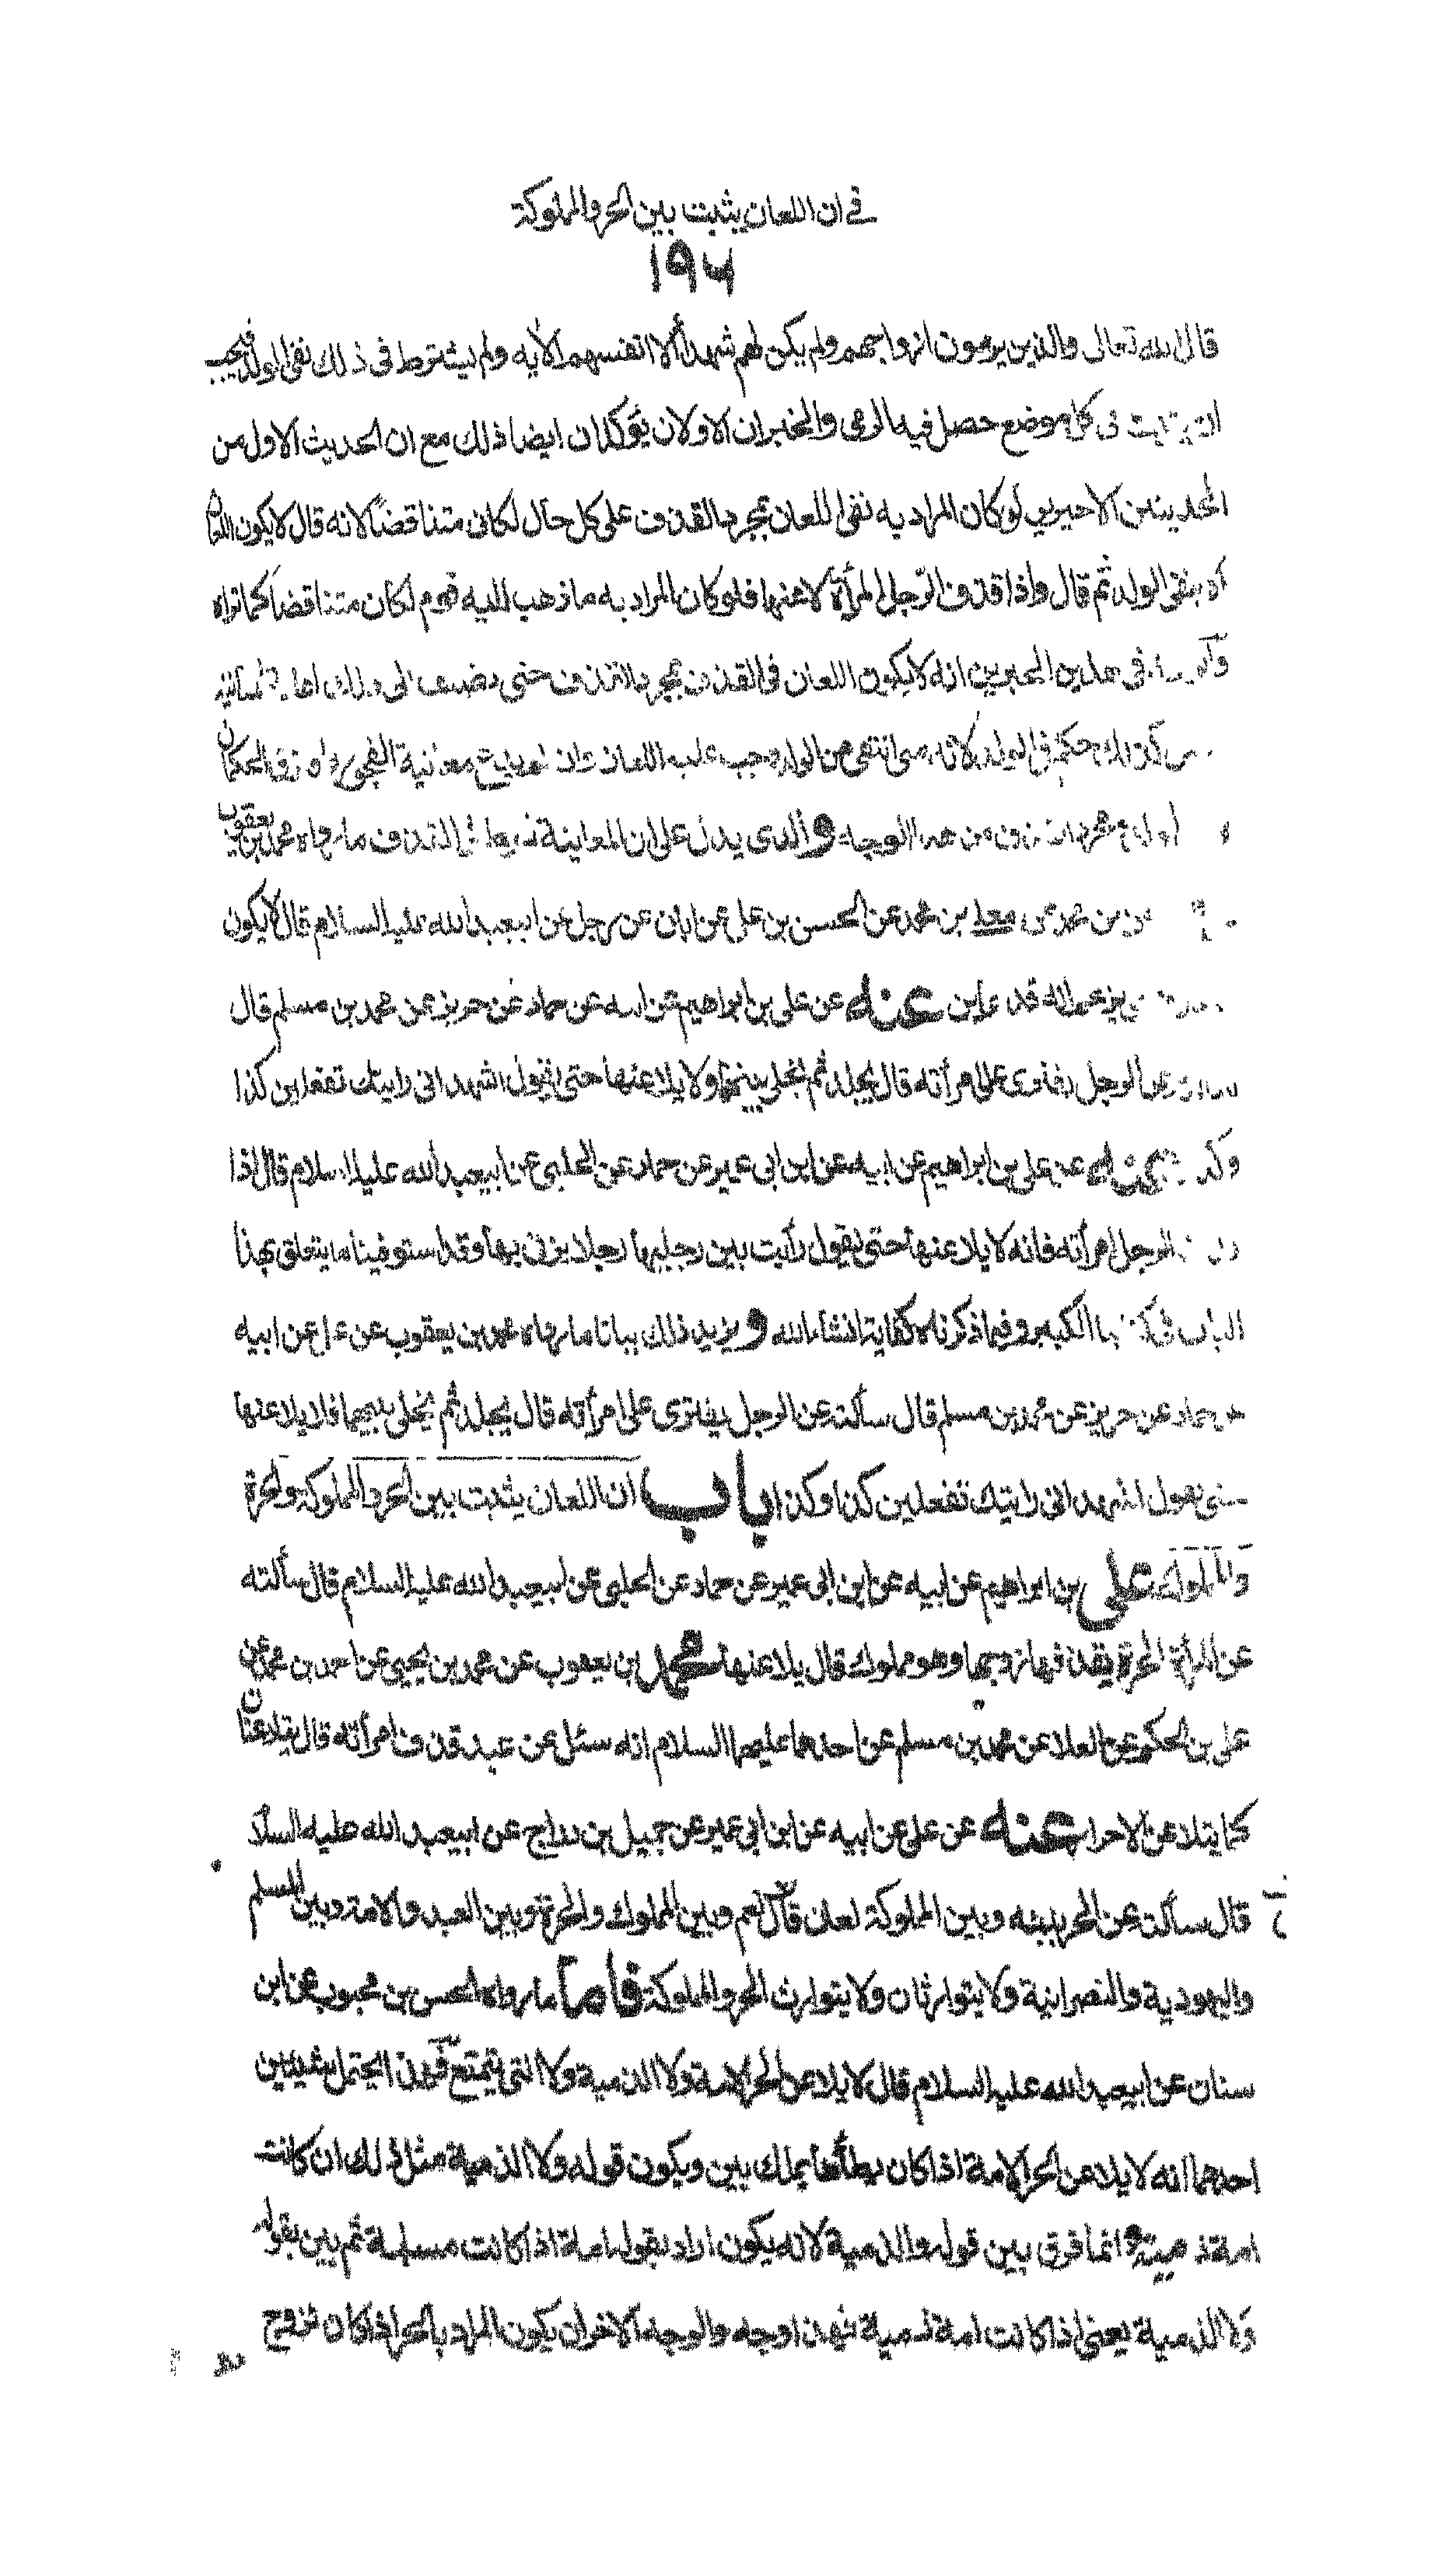 في ان اللعان يثبت بين الحر والمملوكة
١٩٤
قال الله تعالى والذين يرمون ازواجهم ولم يكن لهم شهدآء الا انفسهم الآيه ولم يشترط في ذلك نفى الولد فيجب
ان يثبت في كل موضع حصل فيه الرمى والخبران الاولان يؤكدان ايضا ذلك مع ان الحديث الاول من
الحديثين الاخيرين لو كان المراد به نفى اللعان بمجرد القذف على كل حال لكان متناقضا لانه قال لا يكون اللعان
الا بنفى الولد ثم قال واذا قذف الرجل امرأة لاعنها فلو كان المراد به ما ذهب اليه قوم لكان متناقضا كما تراه
في هذين الخبرين انه لا يكون اللعان في القذف بمجرد القذف حتى يضيف الى ذلك
كذلك حكم في الولد لانه متى انتفى من الولد وجب عليه اللعان وان لم يدع معاينة الفجور
من هذا الوجه والذى يدل على ان المعاينة في القذف ما رواه محمد بن يعقوب
عن معلى بن محمد عن الحسن بن على عن ابان عن رجل عن ابيعبد الله عليه السلام قال لا يكون
يزعم انه قد عاين عنه عن على بن ابراهيم عن ابيه عن حماد عن حريز عن محمد بن مسلم قال
عن الرجل يفترى على امرأته قال يجلد ثم يخلى بينهما ولا يلاعنها حتى يقول اشهد انى رايتك تفعلين كذا
وكذا عنه عن على بن ابراهيم عن ابيه عن ابن ابى عمير عن حماد عن الحلبى عن ابيعبد الله عليه السلام قال اذا
الرجل امرأته فانه لا يلاعنها حتى يقول رأيت بين رجليها رجلا يزنى بها وقد استوفينا ما يتعلق بهذا
الباب في الكبير وفيما ذكرناه كفاية انشاء الله ويزيد ذلك بيانا ما رواه محمد بن يعقوب عن على عن ابيه
عن حماد عن حريز عن محمد بن مسلم قال سألته عن الرجل يفترى على امرأته قال يجلد ثم يخلى بينهما فلا يلاعنها
حتى يقول اشهد انى رايتك تفعلين كذا وكذا باب ان اللعان يثبت بين الحر والمملوكة والحرة
والمملوك على بن ابراهيم عن ابيه عن ابن ابى عمير عن حماد عن الحلبى عن ابيعبد الله عليه السلام قال سألته
عن المرأة الحرة يقذفها زوجها وهو مملوك قال يلاعنها محمد بن يعقوب عن محمد بن يحيى عن احمد بن محمد عن
على بن الحكم عن العلا عن محمد بن مسلم عن احدهما عليهما السلام انه سئل عن عبد قذف امرأته قال يتلاعنان
كما يتلاعن الاحرار عنه عن على عن ابيه عن ابن ابى عمير عن جميل بن دراج عن ابيعبد الله عليه السلا
قال سألته عن الحر بينه وبين المملوكة لعان قال نعم وبين المملوك والحرة وبين العبد والامة وبين المسلم
واليهودية والنصرانية ولا يتوارثان ولا يتوارث الحر والمملوكة فاما ما رواه الحسن بن محبوب عن ابن
سنان عن ابيعبد الله عليه السلام قال لا يلاعن الحر الامة ولا الذمية ولا التى يتمتع فهذا يحتمل شيئين
احدهما انه لا يلاعن الحر الامة اذا كان يطأها بملك يمين ويكون قوله ولا الذمية مثل ذلك ان كانت
امة ذمية وانما فرق بين قوله والذمية لانه يكون اراد بقوله امة اذا كانت مسلمة ثم بين بقوله
ولا الذمية يعنى اذا كانت امة ذمية فهذا وجه والوجه الاخر ان يكون المراد بالحر اذا كان تزوج